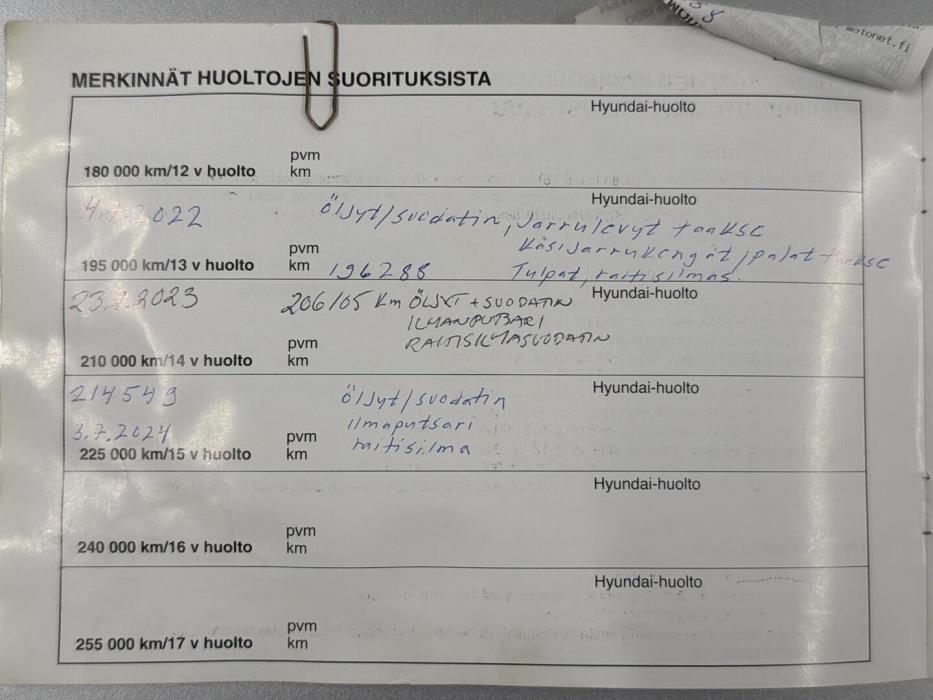 motonet.fi
MERKINNÄT HUOLTOJEN SUORITUKSISTA
Hyundai-huolto
pvm
180 000 km/12 v huolto km
Hyundai-huolto
4.7.2022 Öljyt/suodatin, Jarrulevyt taakse
Käsijarrukengät/palat taakse
pvm
195 000 km/13 v huolto km 196288 Tulpat, raitisilmas.
Hyundai-huolto
23.2.2023 206105 km ÖLJYT + SUODATIN
ILMANPUTSARI
pvm RAITISILMASUODATIN
210 000 km/14 v huolto km
Hyundai-huolto
214549 Öljyt/suodatin
ilmaputsari
3.7.2024 pvm
225 000 km/15 v huolto km raitisilma
Hyundai-huolto
pvm
240 000 km/16 v huolto km
Hyundai-huolto
pvm
255 000 km/17 v huolto km